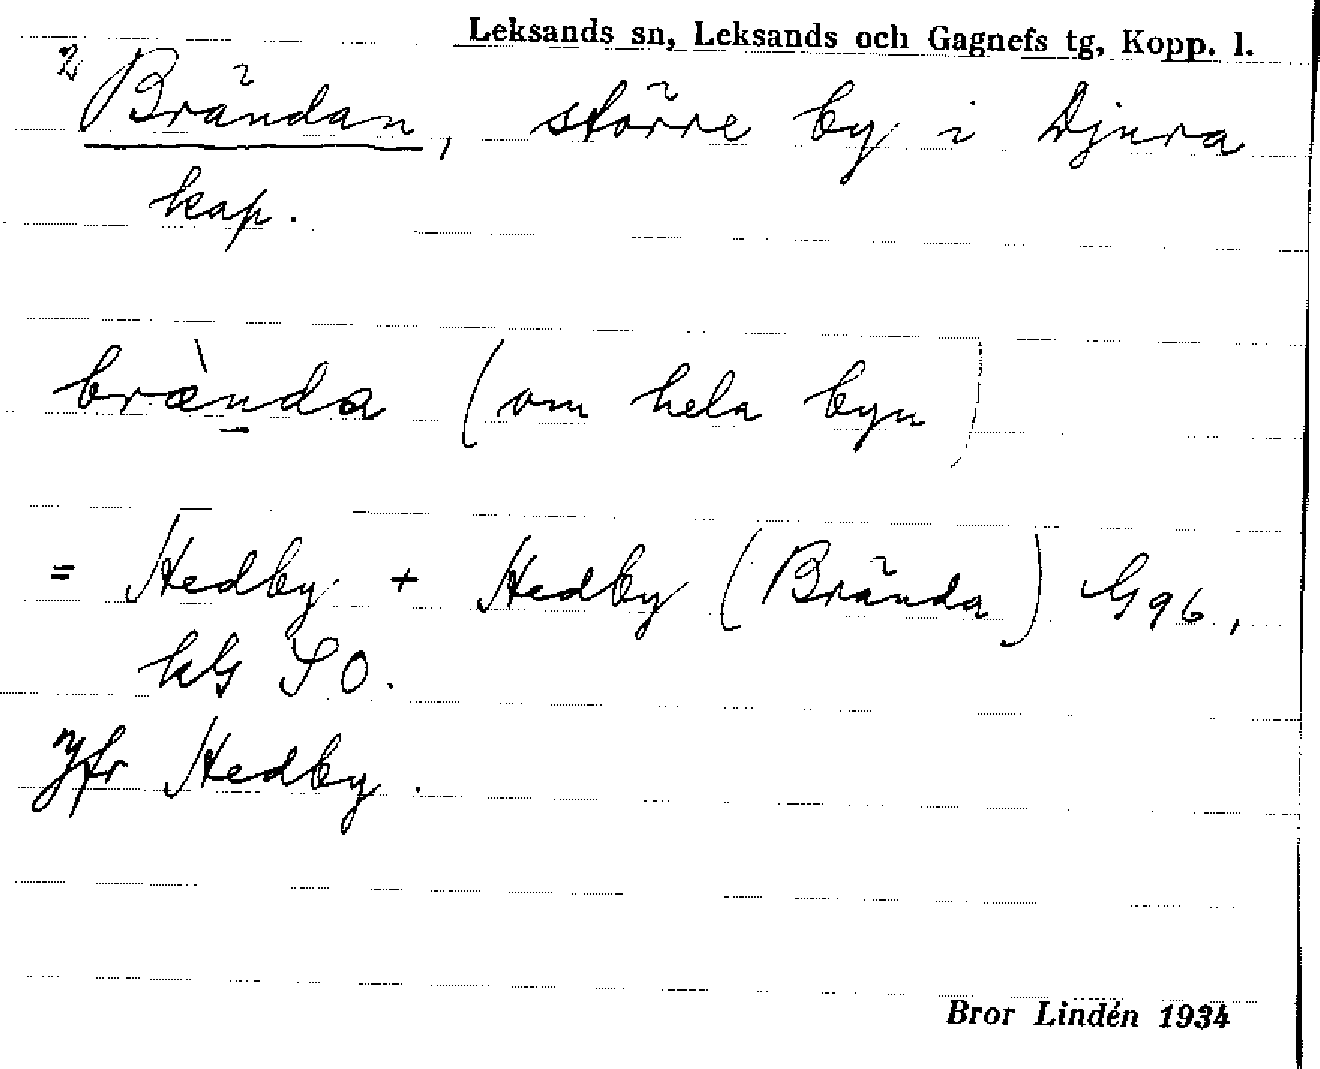 Leksands sn, Leksands och Gagnefs tg, Kopp. l.
2 Brändan, större by i Djura
kap.
brὰnda (om hela byn)
= Hedby + Hedby (Brända) G96,
kG SO.
Jfr Hedby.
Bror Lindén 1934